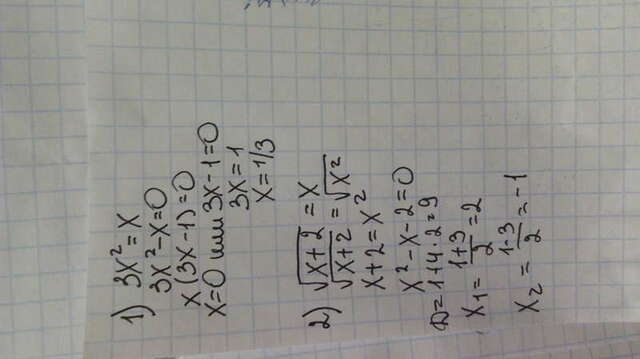 1) 3x² = x
3x² - x = 0
x (3x - 1) = 0
x = 0 или 3x - 1 = 0
3x = 1
x = 1/3
2) √(x + 2) = x
√(x + 2) = √(x²)
x + 2 = x²
x² - x - 2 = 0
D = 1 + 4 · 2 = 9
x₁ = (1+3)/2 = 2
x₂ = (1-3)/2 = -1